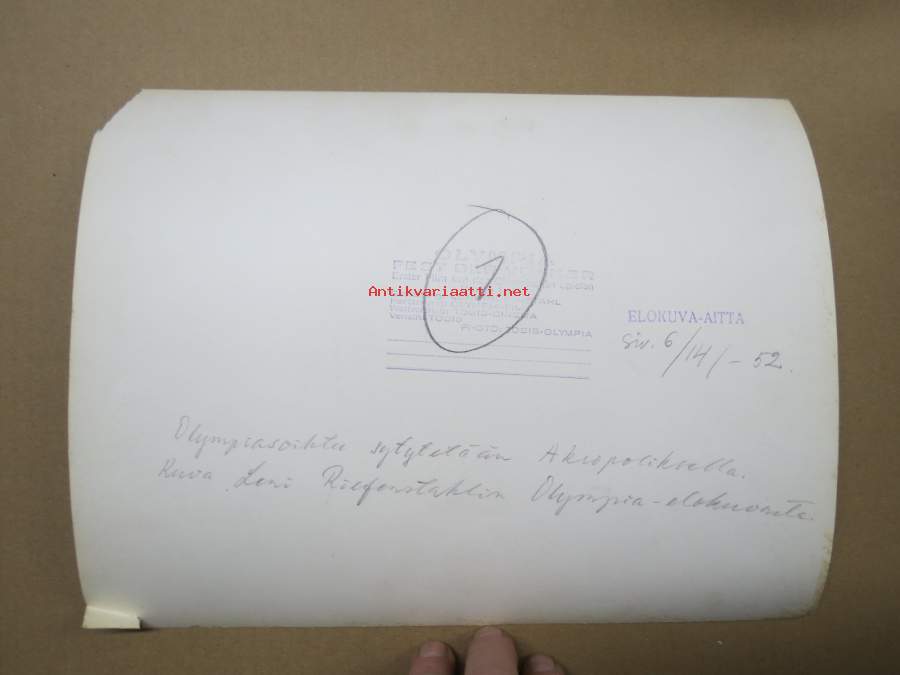 OLYMPIA
FEST DER VÖLKER
Antikvariaatti.net
1
PHOTO: TOBIS-OLYMPIA
ELOKUVA-AITTA
siv. 6/14/-52.
Olympiasoihtu sytytetään Akropoliksella.
Kuva Leni Riefenstahlin Olympia-elokuvasta.